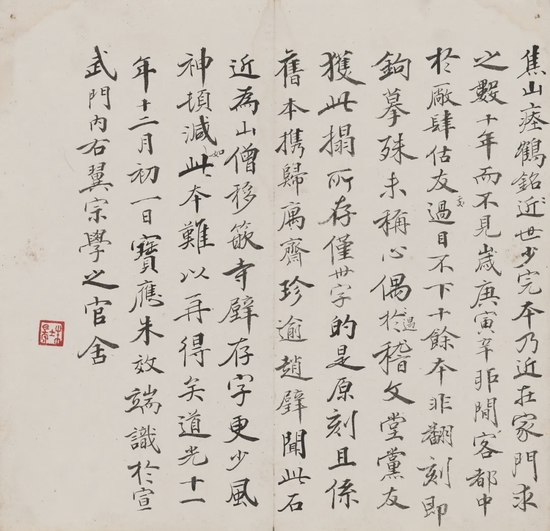 焦山瘞鶴銘近世少完本乃近在家門求
之數十年而不見歲庚寅辛卯閒客都中
於廠肆估友過目不下十餘本非翻刻即
鉤摹殊未稱心偶過於稽文堂黨友
獲此搨所存僅卅字的是原刻且係
舊本携歸寓齋珍逾趙璧聞此石
近為山僧移嵌寺壁存字更少風
神頓減如此本難以再得矣道光十一
年十二月初一日寶應朱效端識於宣
武門內右翼宗學之官舍